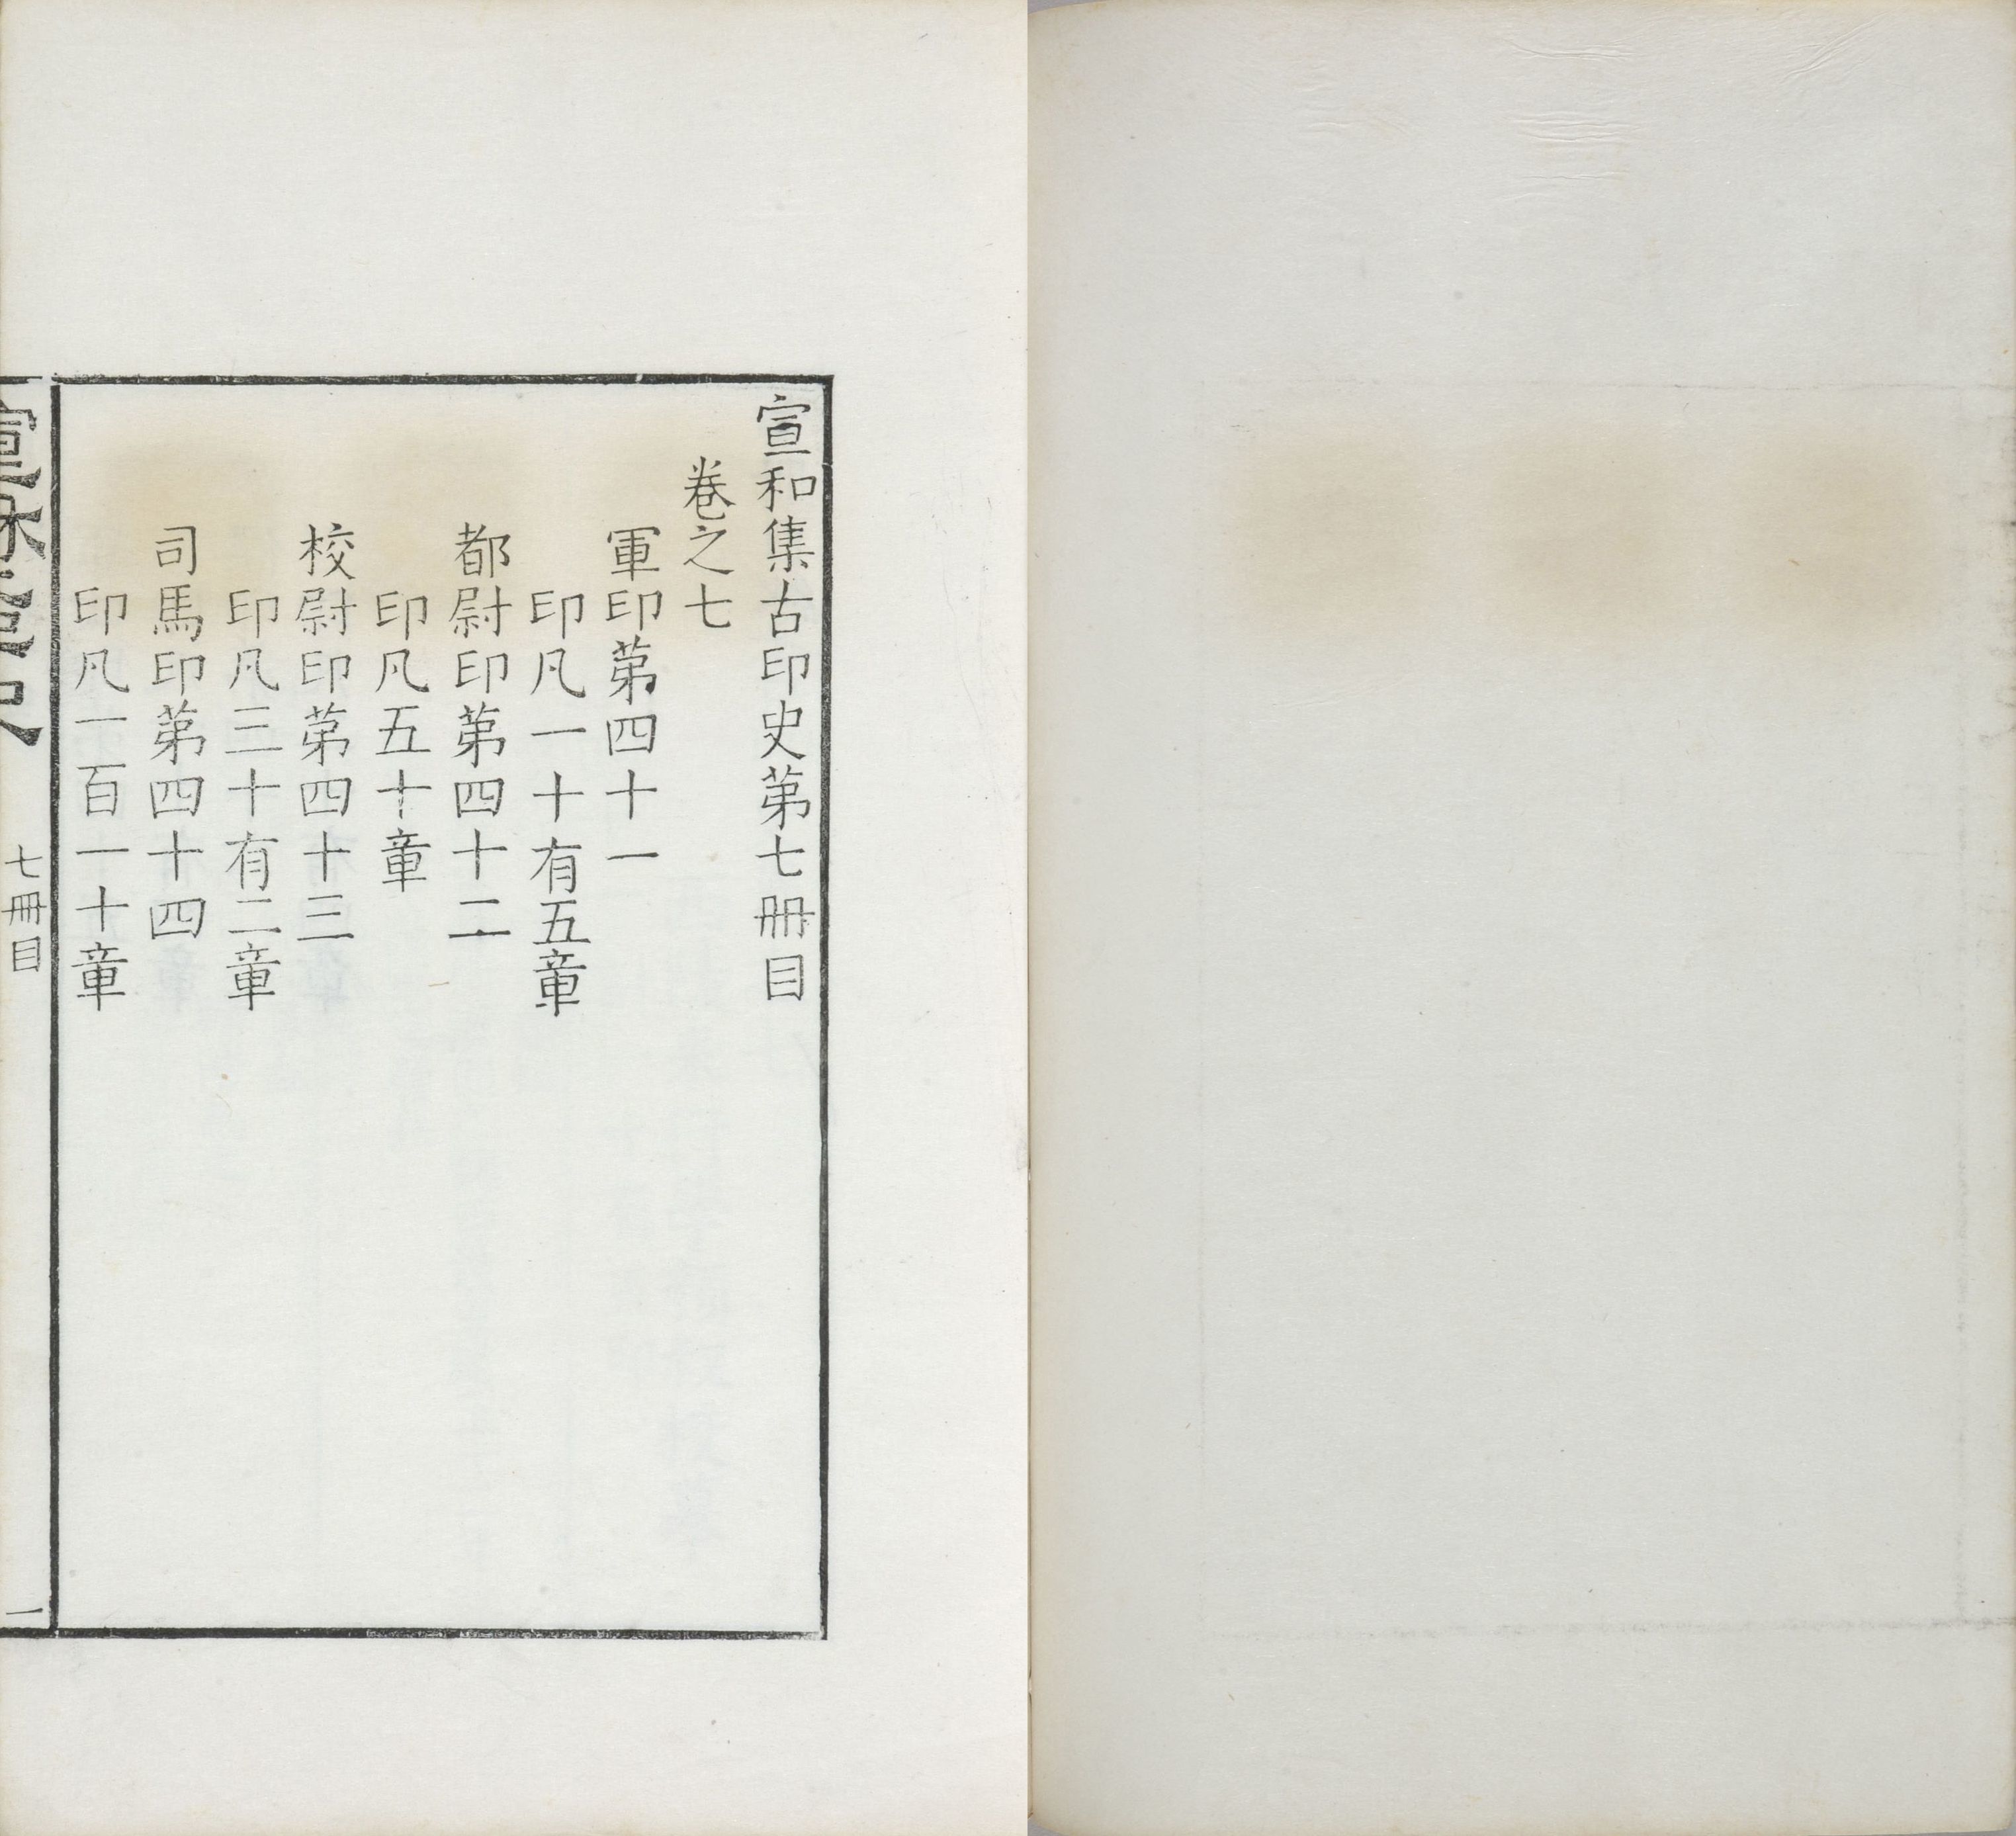 宣和集古印史苐七冊目
卷之七
軍印苐四十一
印凡一十有五章
都尉印苐四十二
印凡五十章
校尉印苐四十三
印凡三十有二章
司馬印苐四十四
印凡一百一十章
七冊目
一